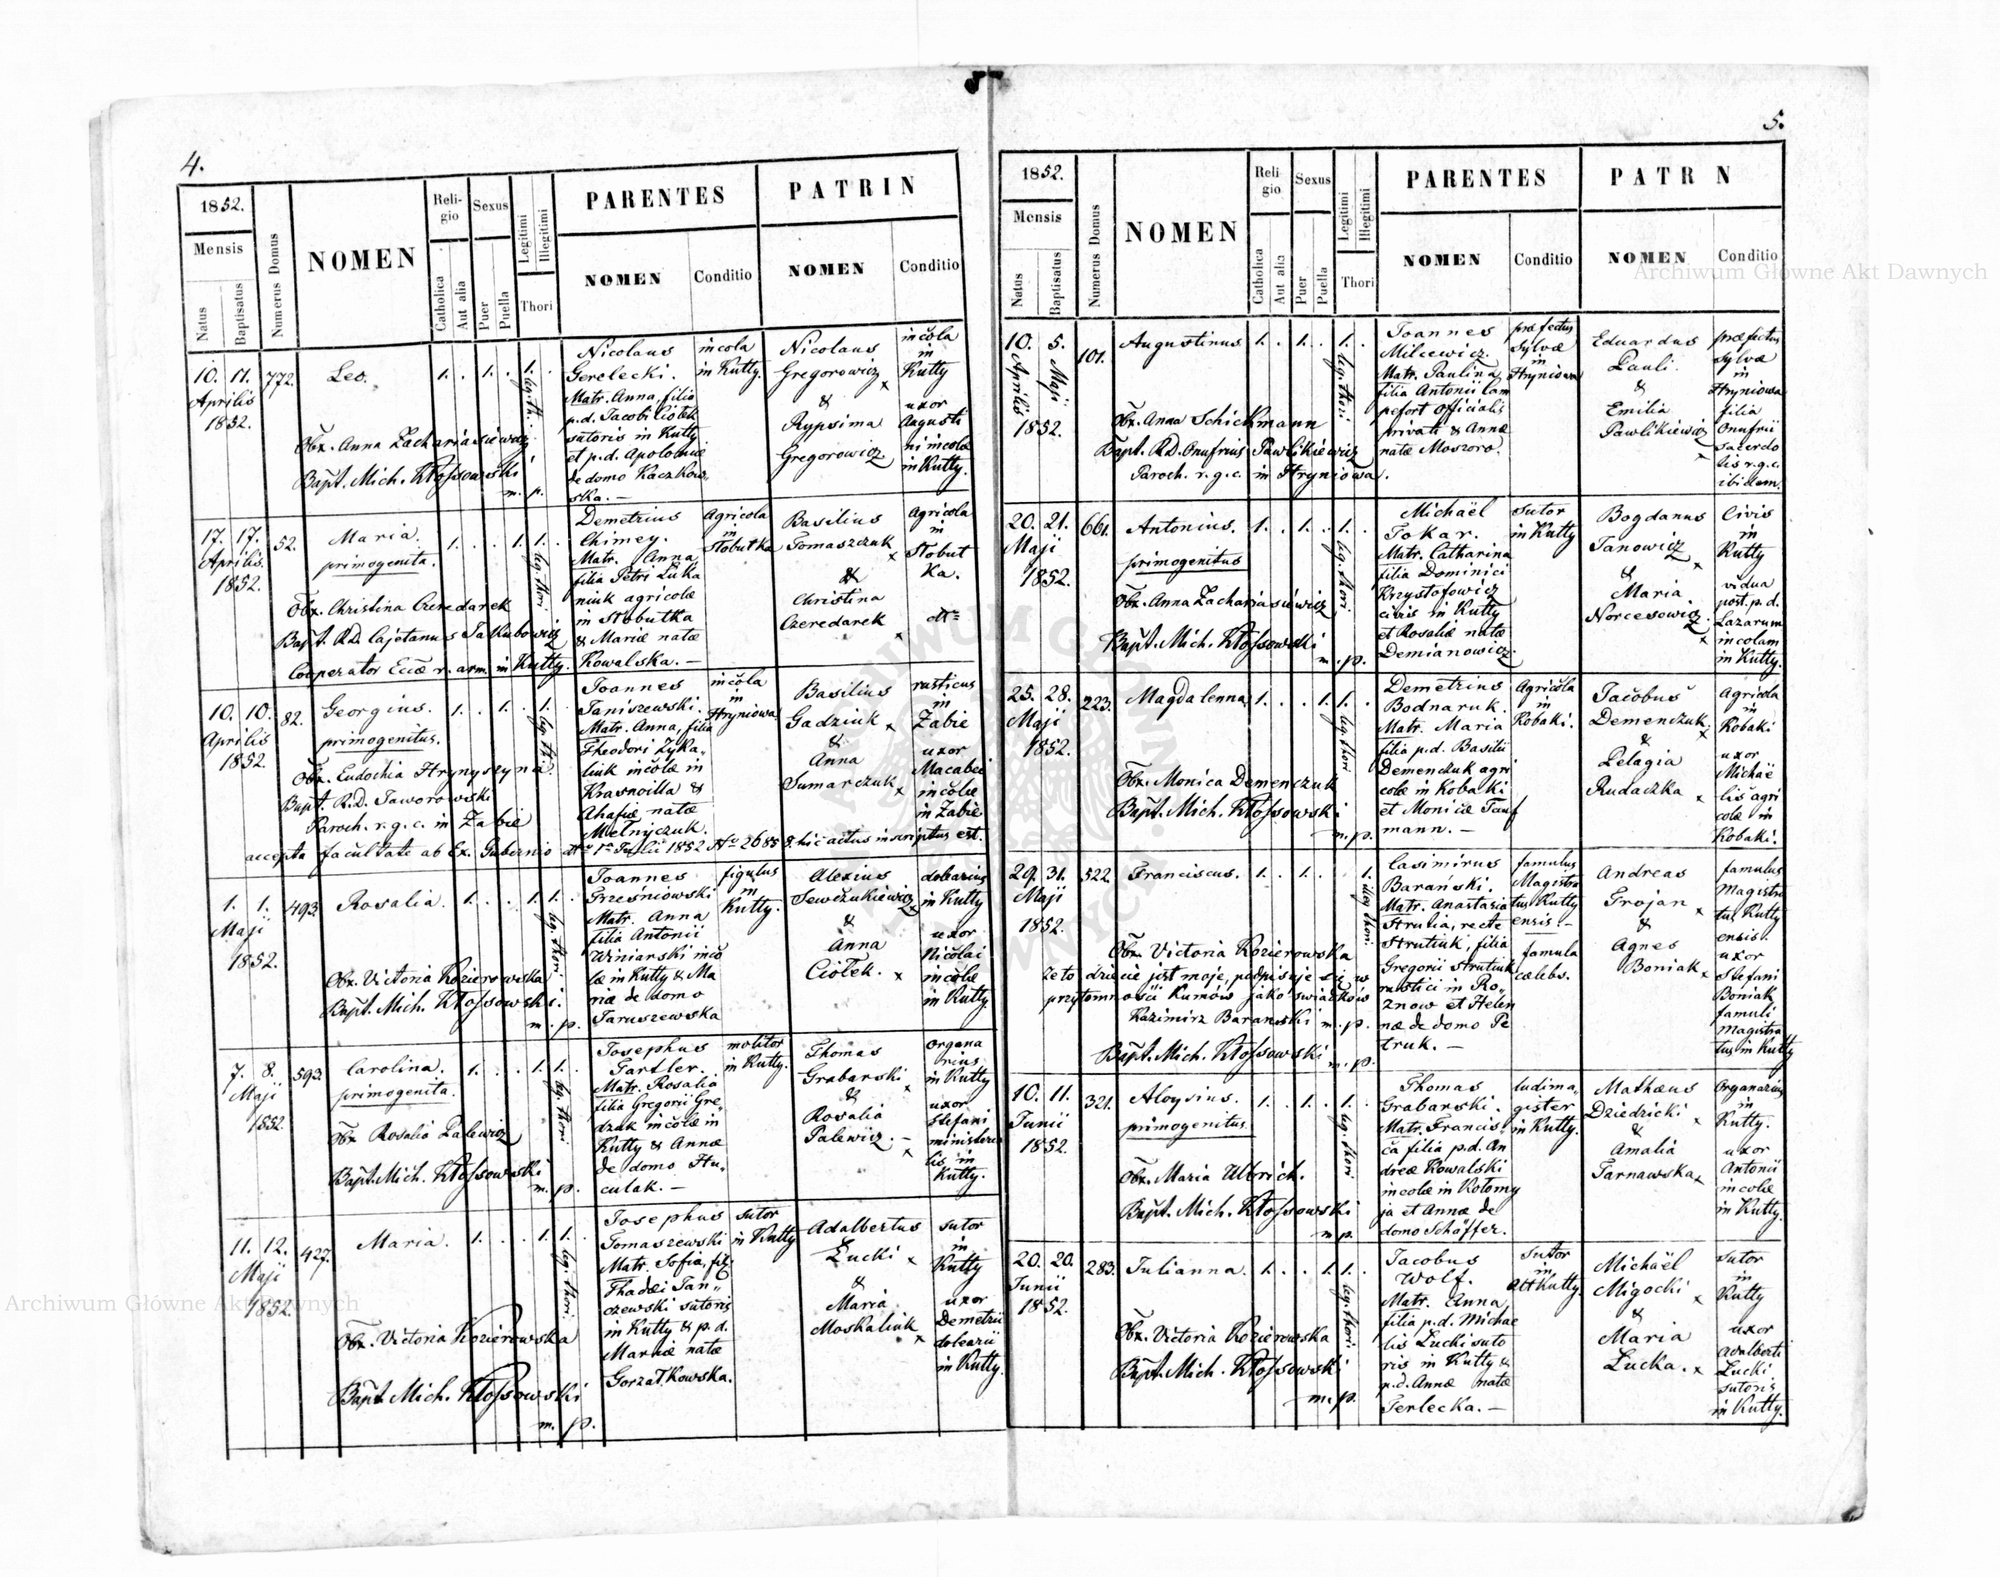 4.
1852.
Mensis
Natus
Baptisatus
Numerus Domus
NOMEN
Religio
Catholica
Aut alia
Sexus
Puer
Puella
Legitimi
Illegitimi
Thori
PARENTES
NOMEN
Conditio
PATRIN
NOMEN
Conditio
10. 11.
Aprilis
1852.
772.
Leo.
1. . 1. . 1. .
leg. thori
Obx. Anna Zachariasiewicz
Bapt. Mich. Kłossowski
m. p.
Nicolaus
Gerelecki.
Matr. Anna, filia
p.d. Jacobi Ciołek
sutoris in Kutty
et p.d. Apoloniæ
de domo Kaczkow„
ska. —
incola
in Kutty.
Nicolaus
Gregorowicz x
&
Rypsima
Gregorowicz.
incola
in
Kutty
uxor
Augusti
ni incolæ
in Kutty.
17. 17.
Aprilis
1852.
52.
Maria.
primogenita.
1. . . 1. 1. .
leg. thori
Obx. Christina Czeredarek
Bapt. R.D. Cajetanus Jakubowicz
Cooperator Eccæ r. arm. in Kutty.
Demetrius
Chimey.
Matr. Anna
filia Petri Łuka
niuk agricolæ
in Słobutka
& Mariæ natæ
Kowalska. —
Agricola
in
Słobutka
Basilius
Tomaszczuk x
&
Christina
Czeredarek x
Agricola
in
Słobut
ka.
dt=
10. 10.
Aprilis
1852.
82.
Georgius.
primogenitus.
1. . 1. . 1. .
leg. thori
Obx. Eudochia Hrynyszyna
Bapt. R.D. Jaworowski
Paroch. r.g.c. in Żabie
accepta facultate ab Ex. Gubernio dt° 1a Julii 1852 N° 26858. hic actus inscriptus est.
Joannes
Janiszewski.
Matr. Anna, filia
Theodori Zyka„
liuk incolæ in
Krasnoilla &
Ahafiæ natæ
Melnyczuk.
incola
in
Hryniowa
Basilius
Gadziuk x
&
Anna
Sumarczuk x
rusticus
in
Żabie
uxor
Macabei
incolæ
in Żabie
1. 1.
Maji
1852.
493.
Rosalia.
1. . . 1. 1. .
leg. thori
Obx. Victoria Kozierowska
Bapt. Mich. Kłossowski.
m. p.
Joannes
Grześniowski
Matr. Anna
filia Antonii
Winiarski inco
læ in Kutty & Ma
næ de domo
Jaruszewska
figulus
in
Kutty.
Alexius
Sewczukiewicz x
&
Anna
Ciołek. x
dolearius
in Kutty
uxor
Nicolai
incolæ
in Kutty.
7. 8.
Maji
1852.
593.
Carolina.
primogenita.
1. . . 1. 1. .
leg. thori
Obx Rosalia Palewicz
Bapt. Mich. Kłossowski
m. p.
Josephus
Tartler.
Matr. Rosalia
filia Gregorii Gre„
dzak incolæ in
Kutty & Annæ
de domo Hu„
culak. —
molitor
in Kutty.
Thomas
Grabarski x
&
Rosalia
Palewicz. — x
organa
rius
in Kutty
uxor
Stefani
ministeria
lis in
Kutty.
11. 12.
Maji
1852.
427.
Maria.
1. . . 1. 1. .
leg. thori
Obx. Victoria Kozierowska
Bapt. Mich. Kłossowski
m. p.
Josephus
Tomaszewski
Matr. Sofia, fil.
Thadæi Jan„
czewski sutoris
in Kutty & p.d.
Mariæ natæ
Gorzałkowska.
sutor
in Kutty
Adalbertus
Łucki x
&
Maria
Moskaliuk x
sutor
in
Kutty
uxor
Demetrii
dolearii
in Kutty.
5.
1852.
Mensis
Natus
Baptisatus
Numerus Domus
NOMEN
Religio
Catholica
Aut alia
Sexus
Puer
Puella
Legitimi
Illegitimi
Thori
PARENTES
NOMEN
Conditio
PATR N
NOMEN
Conditio
10. 5.
Aprilis
Maji
1852.
101.
Augustinus
1. . 1. . 1. .
leg. thori.
Obx. Anna Schickmann
Bapt. R.D. Onufrius Pawlikiewicz
Paroch. r.g.c. in Hryniowa.
Joannes
Milcewicz.
Matr. Paulina
filia Antonii Lam
pefort officialis
privati & Annæ
natæ Moszoro.
præfectus
sylvæ
in
Hryniowa
Eduardus
Pauli.
&
Emilia
Pawlikiewicz x
præfectus
sylvæ
in
Hryniowa
filia
Onufrii
sacerdo
tis r.g.c.
ibidem.
20. 21.
Maji
1852.
661.
Antonius.
primogenitus
1. . 1. . 1. .
leg. thori
Obx. Anna Zachariasiewicz
Bapt. Mich. Kłossowski
m. p.
Michaël
Tokar.
Matr. Catharina
filia Dominici
Krzysztofowicz
civis in Kutty
et Rosaliæ natæ
Demianowicz.
sutor
in Kutty
Bogdanus
Janowicz x
&
Maria
Norcesowicz. x
Civis
in
Kutty
vidua
post. p.d.
Lazarum
incolam
in Kutty.
25. 28.
Maji
1852.
223.
Magdalenna
1. . . 1. 1. .
leg. thori
Obx. Monica Demenczuk
Bapt. Mich. Kłossowski
m. p.
Demetrius
Bodnaruk.
Matr. Maria
filia p.d. Basilii
Demenczuk agri
colæ in Kobaki
et Monicæ Tauf
mann. —
Agricola
in
Kobaki.
Jacobus
Demenczuk x
&
Pelagia
Rudaczka x
Agricola
in
Kobaki
uxor
Michaë
lis agri
colæ in
Kobaki.
29. 31.
Maji
1852.
522.
Franciscus.
1. . 1. . . 1.
illeg. thori.
Obx. Victoria Kozierowska
że to dziécie jest moje, podpisuje się w
przytomności Kumów jako świadków
Kazimirz Baranski m. p.
Bapt. Mich. Kłossowski
m. p.
Casimirus
Barański.
Matr. Anastasia
Strutia, recte
Strutiuk, filia
Gregorii Strutiuk
rustici in Ro„
znow et Helen
næ de domo Pe
truk. —
famulus
Magistra
tus Kutty
ensis. —
famula
cælebs.
Andreas
Trojan x
&
Agnes
Boniak x
famulus
Magistra
tus Kutty
ensis.
uxor
Stefani
Boniak
famuli
Magistra
tus in Kutty
10. 11.
Junii
1852.
321.
Aloysius.
primogenitus.
1. . 1. . 1. .
leg. thori
Obx. Maria Ulbrich.
Bapt. Mich. Kłossowski
m. p.
Thomas
Grabarski.
Matr. Francis„
ca filia p.d. An
dreæ Kowalski
incolæ in Kołomy
ja et Annæ de
domo Schäffer.
ludima„
gister
in Kutty.
Mathæus
Dziedzicki x
&
Amalia
Tarnawska x
Organarius
in
Kutty.
uxor
Antonii
incolæ
in Kutty.
20. 20.
Junii
1852.
283.
Julianna.
1. . . 1. 1. .
leg. thori
Obx. Victoria Kozierowska
Bapt. Mich. Kłossowski
m. p.
Jacobus
Wolf.
Matr. Anna
filia p.d. Michae
lis Łucki suto
ris in Kutty &
p.d. Annæ natæ
Terlecka. —
sutor
in
Kutty
Michaël
Migocki x
&
Maria
Łucka. x
sutor
in
Kutty
uxor
Adalberti
Łucki
sutoris
in Kutty.
Archiwum Główne Akt Dawnych
Archiwum Główne Akt Dawnych